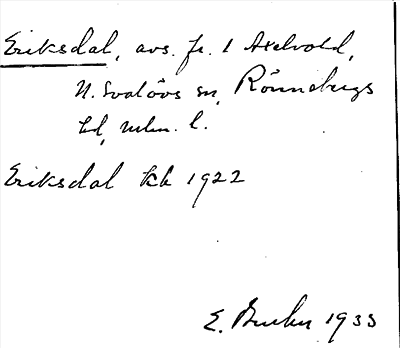 Eriksdal, avs. fr. 1 Axelvold,
N. Svalövs sn, Rönnebergs
hd, mlm. l.
Eriksdal kb 1922
E. 1933